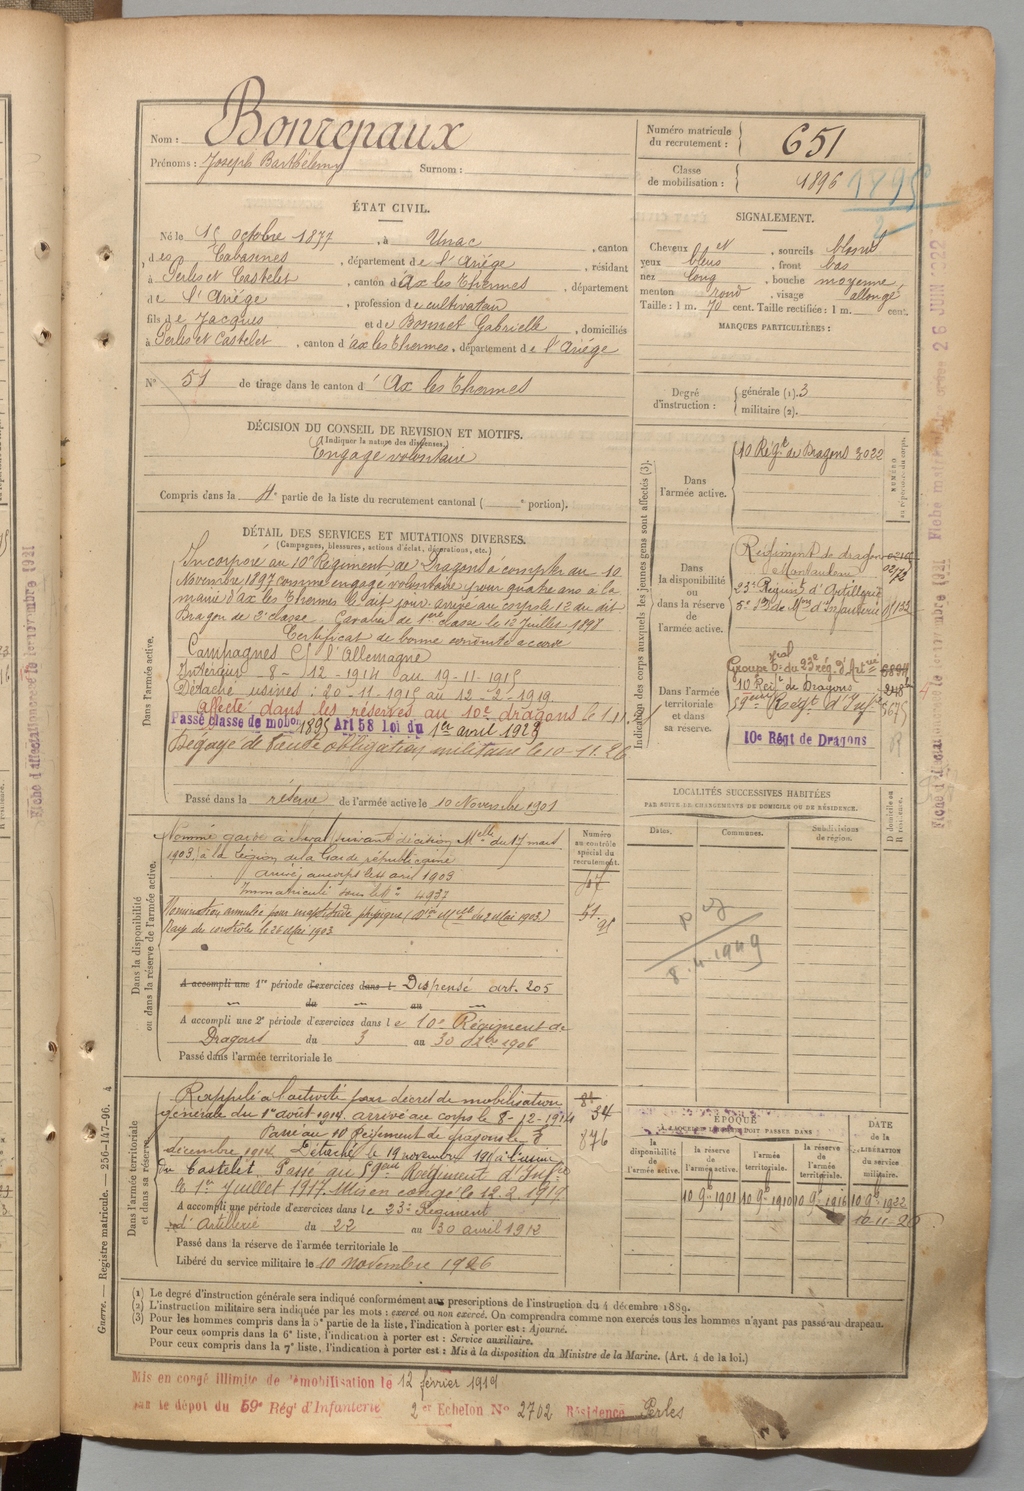 Nom : Bonrepaux
Prénoms : Joseph Barthélemy Surnom :
Numéro matricule du recrutement : 651
Classe de mobilisation : 1896 1895
ÉTAT CIVIL.
Né le 15 octobre 1877, à Unac, canton
des Cabannes, département de l'Ariége, résidant
à Perles et Castelet, canton d'Ax les Thermes, département
de l'Ariége, profession de cultivateur
fils de Jacques et de Bonnet Gabrielle, domiciliés
à Perles et Castelet, canton d'Ax les Thermes, département de l'Ariége
N° 51 de tirage dans le canton d'Ax les Thermes
SIGNALEMENT.
Cheveux et, sourcils blond
yeux bleus, front bas
nez long, bouche moyenne,
menton rond, visage allongé
Taille : 1 m. 70 cent. Taille rectifiée : 1 m. cent.
MARQUES PARTICULIÈRES :
Degré d'instruction : générale (1). 3
militaire (2).
DÉCISION DU CONSEIL DE REVISION ET MOTIFS.
(Indiquer la nature des dispenses.)
Engagé volontaire
Compris dans la 4e partie de la liste du recrutement cantonal ( e portion).
DÉTAIL DES SERVICES ET MUTATIONS DIVERSES.
(Campagnes, blessures, actions d'éclat, décorations, etc.)
Dans l'armée active.
Incorporé au 10e Régiment de Dragons à compter du 10
Novembre 1897 comme engagé volontaire pour quatre ans à la
mairie d'Ax les Thermes le dit jour arrivé au corps le 12 du dit
Dragon de 2e classe Cavalier de 1ere classe le 12 Juillet 1898
Certificat de bonne conduite accordé
Campagnes C/ l'Allemagne
Intérieur 8-12-1914 au 19-11-1915
Détaché usines : 20-11-1915 au 12-2-1919
affecté dans les réserves au 10e dragons le 1.11.
Passé classe de mobon 1895 Art 58 Loi du 1er avril 1923
Dégagé de toute obligation militaire le 10-11-26
Passé dans la réserve de l'armée active le 10 Novembre 1901
Indication des corps auxquels les jeunes gens sont affectés (3).
NUMÉRO au répertoire du corps.
Dans l'armée active. 10 Régt de Dragons 3022
Dans la disponibilité ou dans la réserve de l'armée active.
Régiment de dragons
Montauban 0272
23e Régimt d'Artillerie
Dans l'armée territoriale et dans sa réserve.
Groupe Tal du 23e rég. d'Artie
10 Régt de Dragons
59eme Régt d'Infie 5675
10e Régt de Dragons
LOCALITÉS SUCCESSIVES HABITÉES
PAR SUITE DE CHANGEMENTS DE DOMICILE OU DE RÉSIDENCE.
Dates. Communes. Subdivisions de région. D domicile ou R résidence.
8.4.1949
Dans la disponibilité ou dans la réserve de l'armée active.
Numéro au contrôle spécial du recrutement.
Nommé garde à cheval (suivant décision Melle du 17 mars
1903) à la Légion de la Garde républicaine
arrivé au corps le 4 avril 1903
Immatriculé sous le N° 4937
Nomination annulée pour inaptitude physique (Don Mlle du 2 Mai 1903)
Rayé du contrôle le 26 Mai 1903
A accompli une 1re période d'exercices dans l Dispensé art. 205
du au
A accompli une 2e période d'exercices dans le 10e Régiment de
Dragons du 3 au 30 Xbre 1906
Passé dans l'armée territoriale le
Dans l'armée territoriale et dans sa réserve.
Rappelé à l'activité par décret de mobilisation
générale du 1er août 1914. arrivé au corps le 8-12-1914 34
Passé au 10 Régiment de dragons le 8 876
décembre 1914. Détaché le 19 novembre 1915 à l'usine
du Castelet. Passé au 59eme Régiment d'Infie
le 1er juillet 1917. Mis en congé le 12.2.1919
A accompli une période d'exercices dans le 23e Régiment
d'Artillerie du 22 au 30 avril 1912
Passé dans la réserve de l'armée territoriale le
Libéré du service militaire le 10 novembre 1926
ÉPOQUE
À LAQUELLE L'HOMME DOIT PASSER DANS
la disponibilité de l'armée active. la réserve de l'armée active. l'armée territoriale. la réserve de l'armée territoriale.
DATE de la LIBÉRATION du service militaire.
10 9bre 1901 10 9bre 1910 10 9bre 1916 10 9bre 1922
10-11-26
(1) Le degré d'instruction générale sera indiqué conformément aux prescriptions de l'instruction du 4 décembre 1889.
(2) L'instruction militaire sera indiquée par les mots : exercé ou non exercé. On comprendra comme non exercés tous les hommes n'ayant pas passé au drapeau.
(3) Pour les hommes compris dans la 5e partie de la liste, l'indication à porter est : Ajourné.
Pour ceux compris dans la 6e liste, l'indication à porter est : Service auxiliaire.
Pour ceux compris dans la 7e liste, l'indication à porter est : Mis à la disposition du Ministre de la Marine. (Art. 4 de la loi.)
Guerre. — Registre matricule. — 256-147-96. 4
Mis en congé illimité de démobilisation le 12 février 1919
par le dépôt du 59e Régt d'Infanterie 2er Echelon N° 2702 Résidence Perles